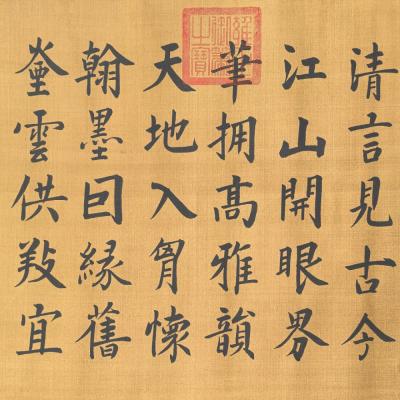 清言見古今
江山開眼界
筆拥高雅韻
天地入胷懷
翰墨囙緣舊
雲供宜